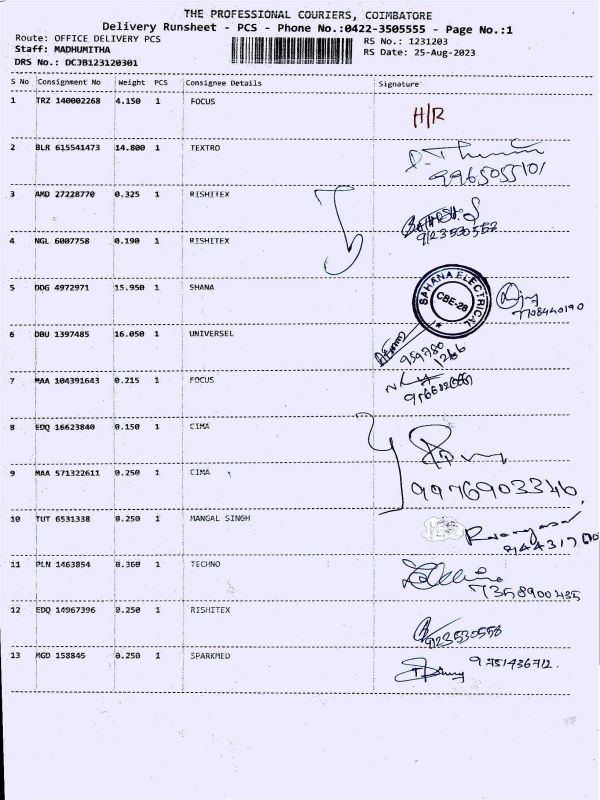 THE PROFESSIONAL COURIERS, COIMBATORE
Delivery Runsheet - PCS - Phone No.:0422-3505555 - Page No.:1
Route: OFFICE DELIVERY PCS RS No.: 1231203
Staff: MADHUMITHA RS Date: 25-Aug-2023
DRS No.: DCJB123120301
S No Consignment No Weight PCS Consignee Details Signature
1 TRZ 140002268 4.150 1 FOCUS
H/R
2 BLR 615541473 14.800 1 TEXTRO
9965055101
3 AMD 27228770 0.325 1 RISHITEX
4 NGL 6007758 0.190 1 RISHITEX
5 DDG 4972971 15.950 1 SHANA
SAHANA ELECTRICAL
CBE-28
6 DBU 1397485 16.050 1 UNIVERSEL
7 MAA 104391643 0.215 1 FOCUS
8 EDQ 16623840 0.150 1 CIMA
9 MAA 571322611 0.250 1 CIMA
9976903346
10 TUT 6531338 0.250 1 MANGAL SINGH
11 PLN 1463854 0.360 1 TECHNO
7358900435
12 EDQ 14967396 0.250 1 RISHITEX
13 MGD 158845 0.250 1 SPARKMED
9751436712